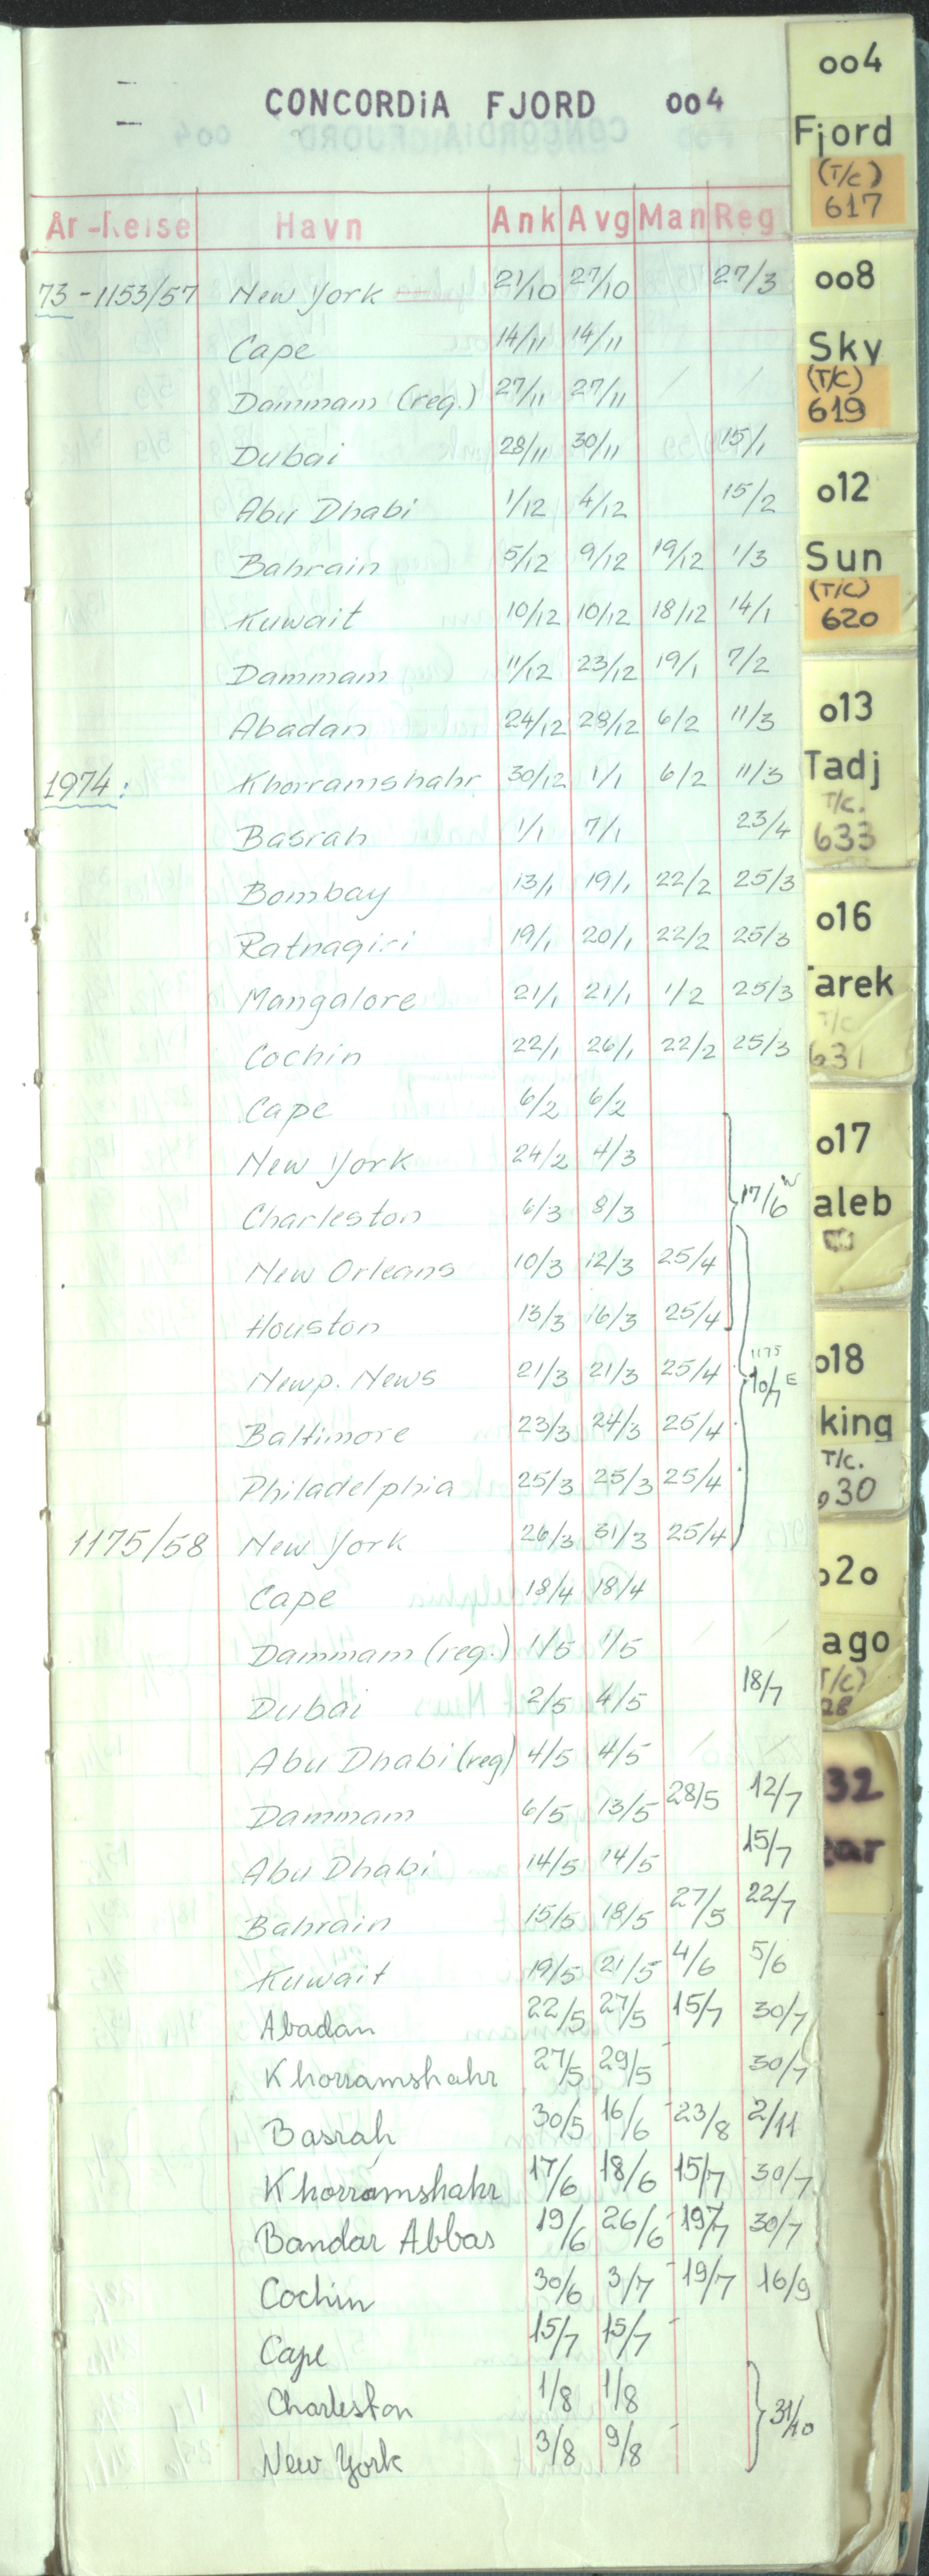 CONCORDiA FJORD 004
År-Reise Havn Ank Avg Man Reg
73 - 1153/57 New York 21/10 27/10 27/3
Cape 14/11 14/11
Dammam (reg.) 27/11 27/11 / /
Dubai 28/11 30/11 15/1
Abu Dhabi 1/12 4/12 15/2
Bahrain 5/12 9/12 19/12 1/3
Kuwait 10/12 10/12 18/12 14/1
Dammam 11/12 23/12 19/1 7/2
Abadan 24/12 28/12 6/2 11/3
1974: Khorramshahr 30/12 1/1 6/2 11/3
Basrah 1/1 7/1 23/4
Bombay 13/1 19/1 22/2 25/3
Ratnagiri 19/1 20/1 22/2 25/3
Mangalore 21/1 21/1 1/2 25/3
Cochin 22/1 26/1 22/2 25/3
Cape 6/2 6/2
New York 24/2 4/3
Charleston 6/3 8/3 17/6 W
New Orleans 10/3 12/3 25/4
Houston 13/3 16/3 25/4
Newp. News 21/3 21/3 25/4 1175 10/7 E
Baltimore 23/3 24/3 25/4
Philadelphia 25/3 25/3 25/4
1175/58 New York 26/3 31/3 25/4
Cape 18/4 18/4
Dammam (reg.) 1/5 1/5 / /
Dubai 2/5 4/5 18/7
Abu Dhabi (reg) 4/5 4/5 / /
Dammam 6/5 13/5 28/5 12/7
Abu Dhabi 14/5 14/5 15/7
Bahrain 15/5 18/5 27/5 22/7
Kuwait 19/5 21/5 4/6 5/6
Abadan 22/5 27/5 15/7 30/7
Khorramshahr 27/5 29/5 30/7
Basrah 30/5 16/6 23/8 2/11
Khorramshahr 17/6 18/6 15/7 30/7
Bandar Abbas 19/6 26/6 19/7 30/7
Cochin 30/6 3/7 19/7 16/9
Cape 15/7 15/7
Charleston 1/8 1/8
New York 3/8 9/8 31/10
004
Fjord
(T/C)
617
008
Sky
(T/C)
619
012
Sun
(T/C)
620
013
Tadj
T/C.
633
016
arek
T/C
631
017
aleb
018
king
T/C.
630
020
ago
T/C)
28
32
ar